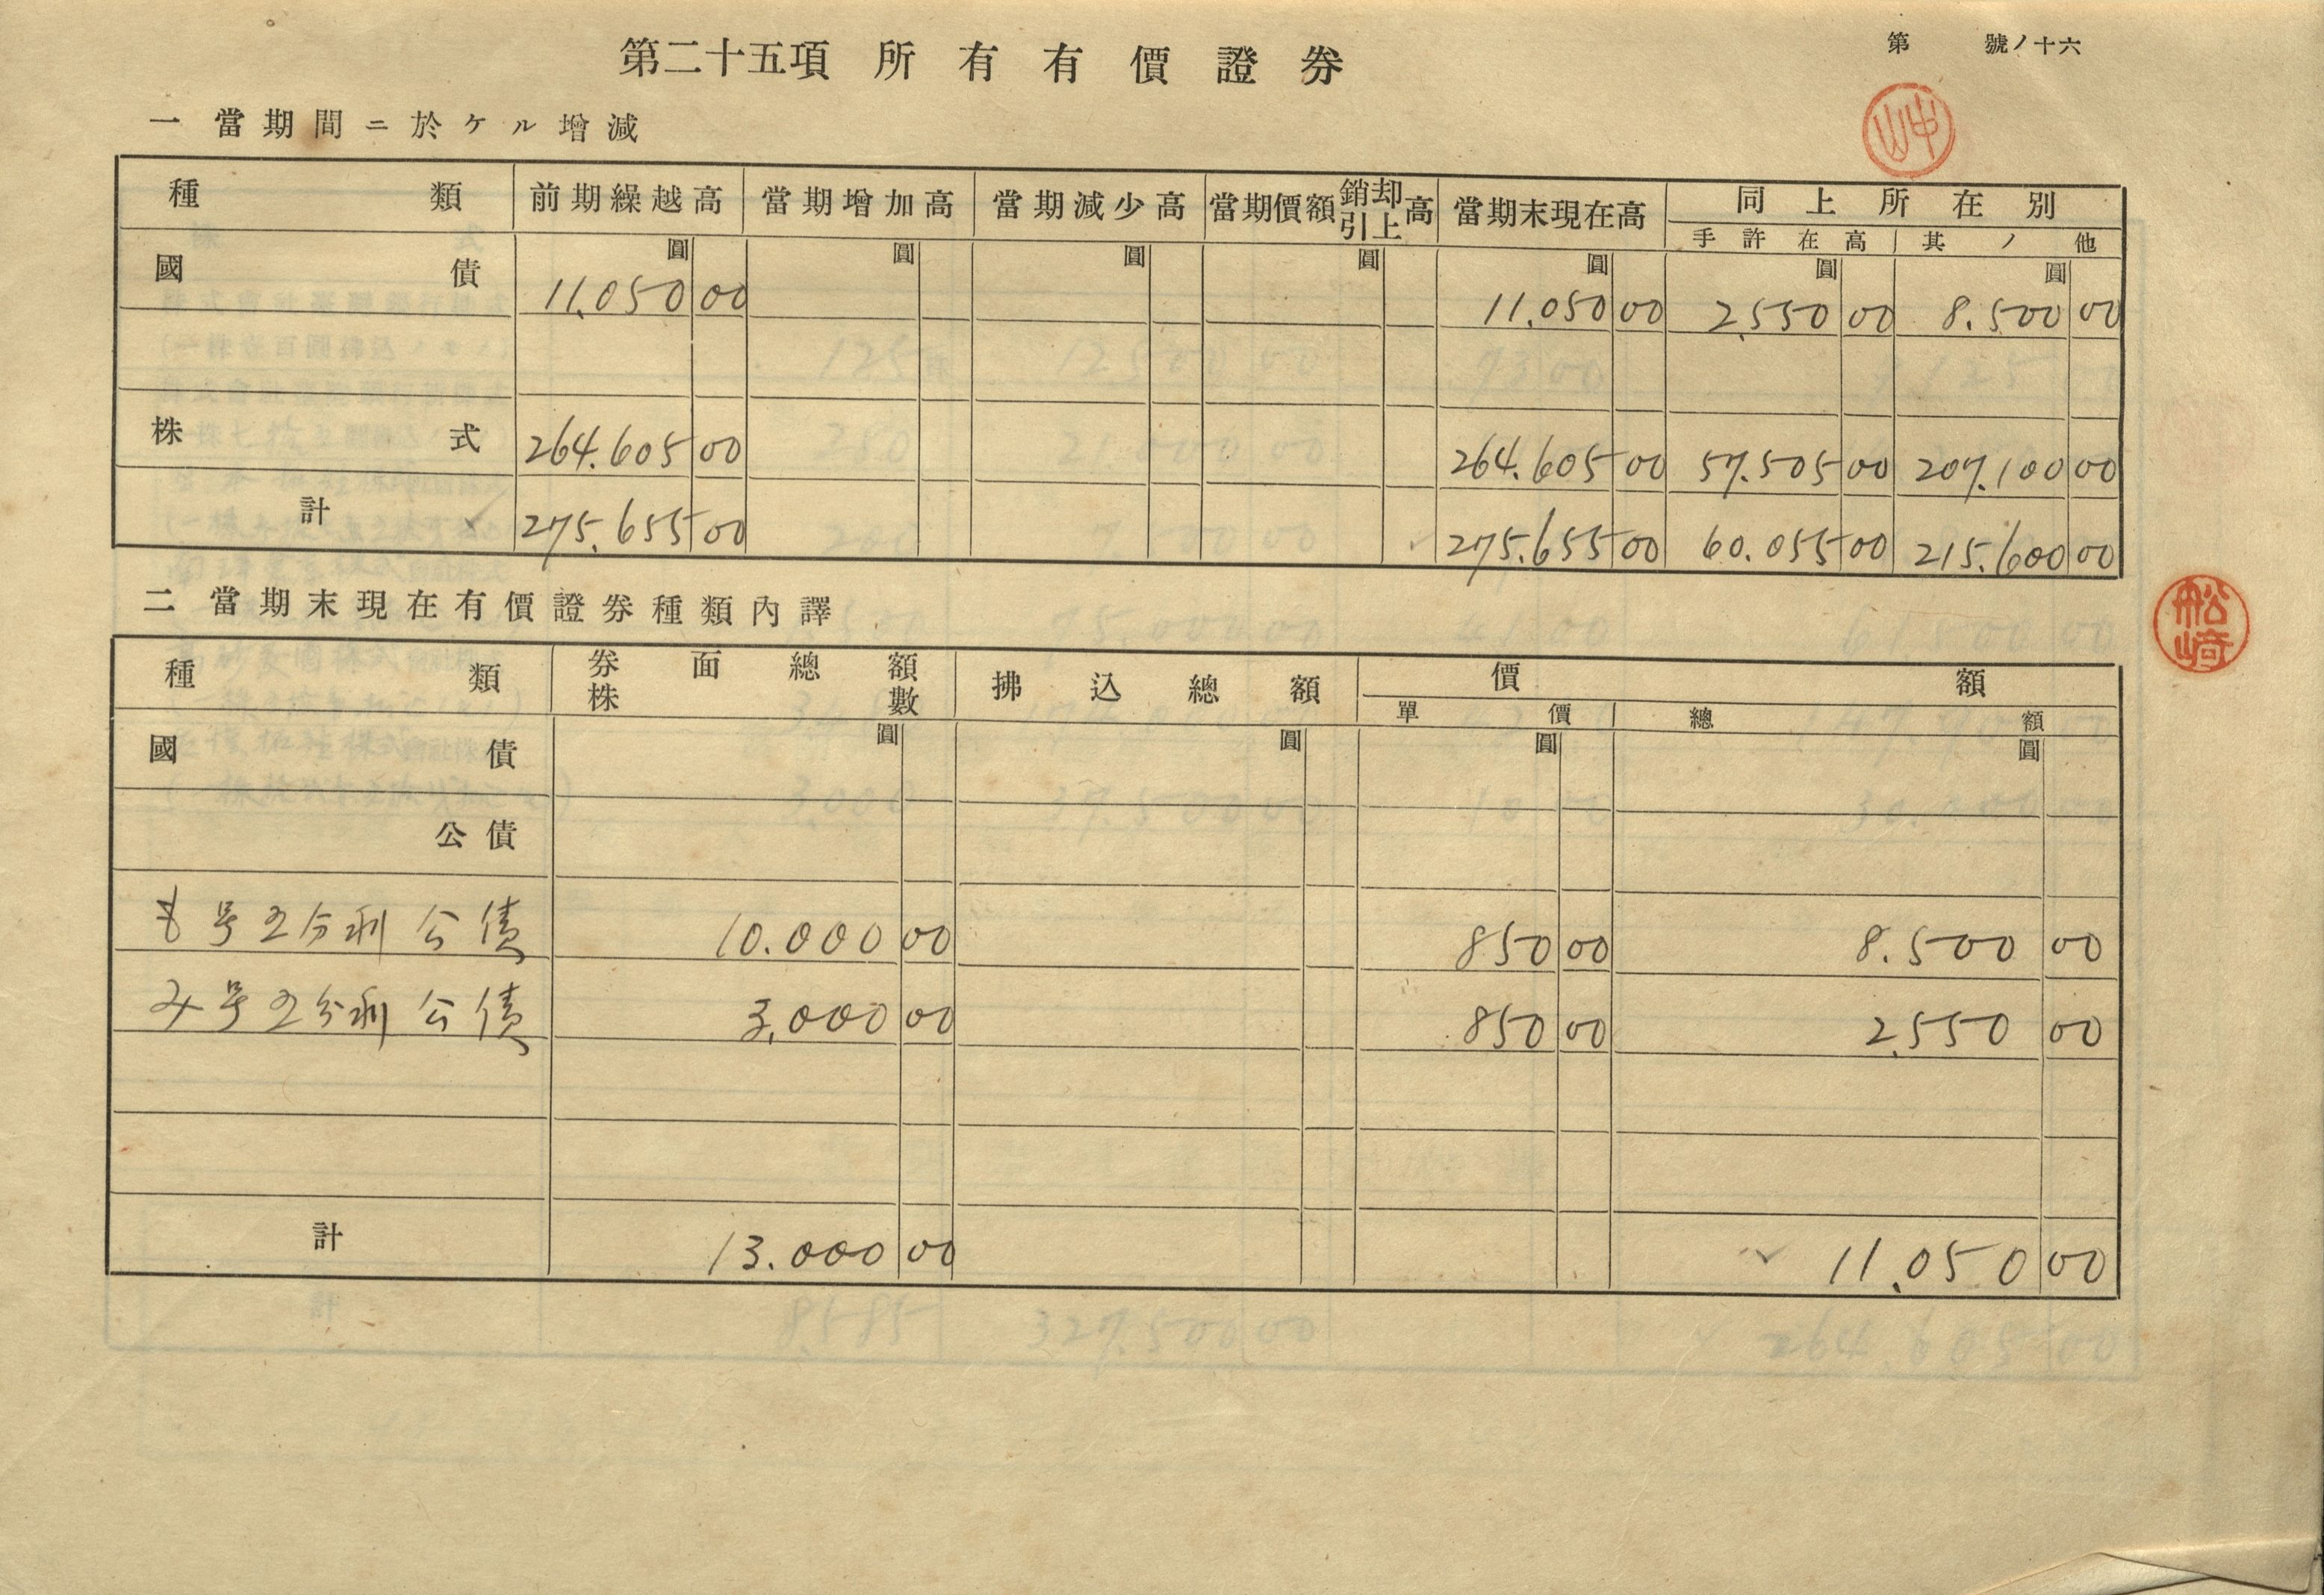 第二十五項 所有有價證券
第 號ノ十六
一 當期間ニ於ケル增減
種類 前期繰越高 當期增加高 當期減少高 當期價額銷却引上高 當期末現在高 同上所在別
手許在高 其ノ他
圓 圓 圓 圓 圓 圓 圓
國債 11.050 00 11.050 00 2.550 00 8.500 00
株式 264.605 00 264.605 00 57.505 00 207.100 00
計 275.655 00 275.655 00 60.055 00 215.600 00
二 當期末現在有價證券種類內譯
松崎
種類 券面總額 株數 拂込總額 價額
單價 總額
圓 圓 圓 圓
國債
公債
も号五分利公債 10.000 00 850 00 8.500 00
み号五分利公債 3.000 00 850 00 2.550 00
計 13.000 00 11.050 00